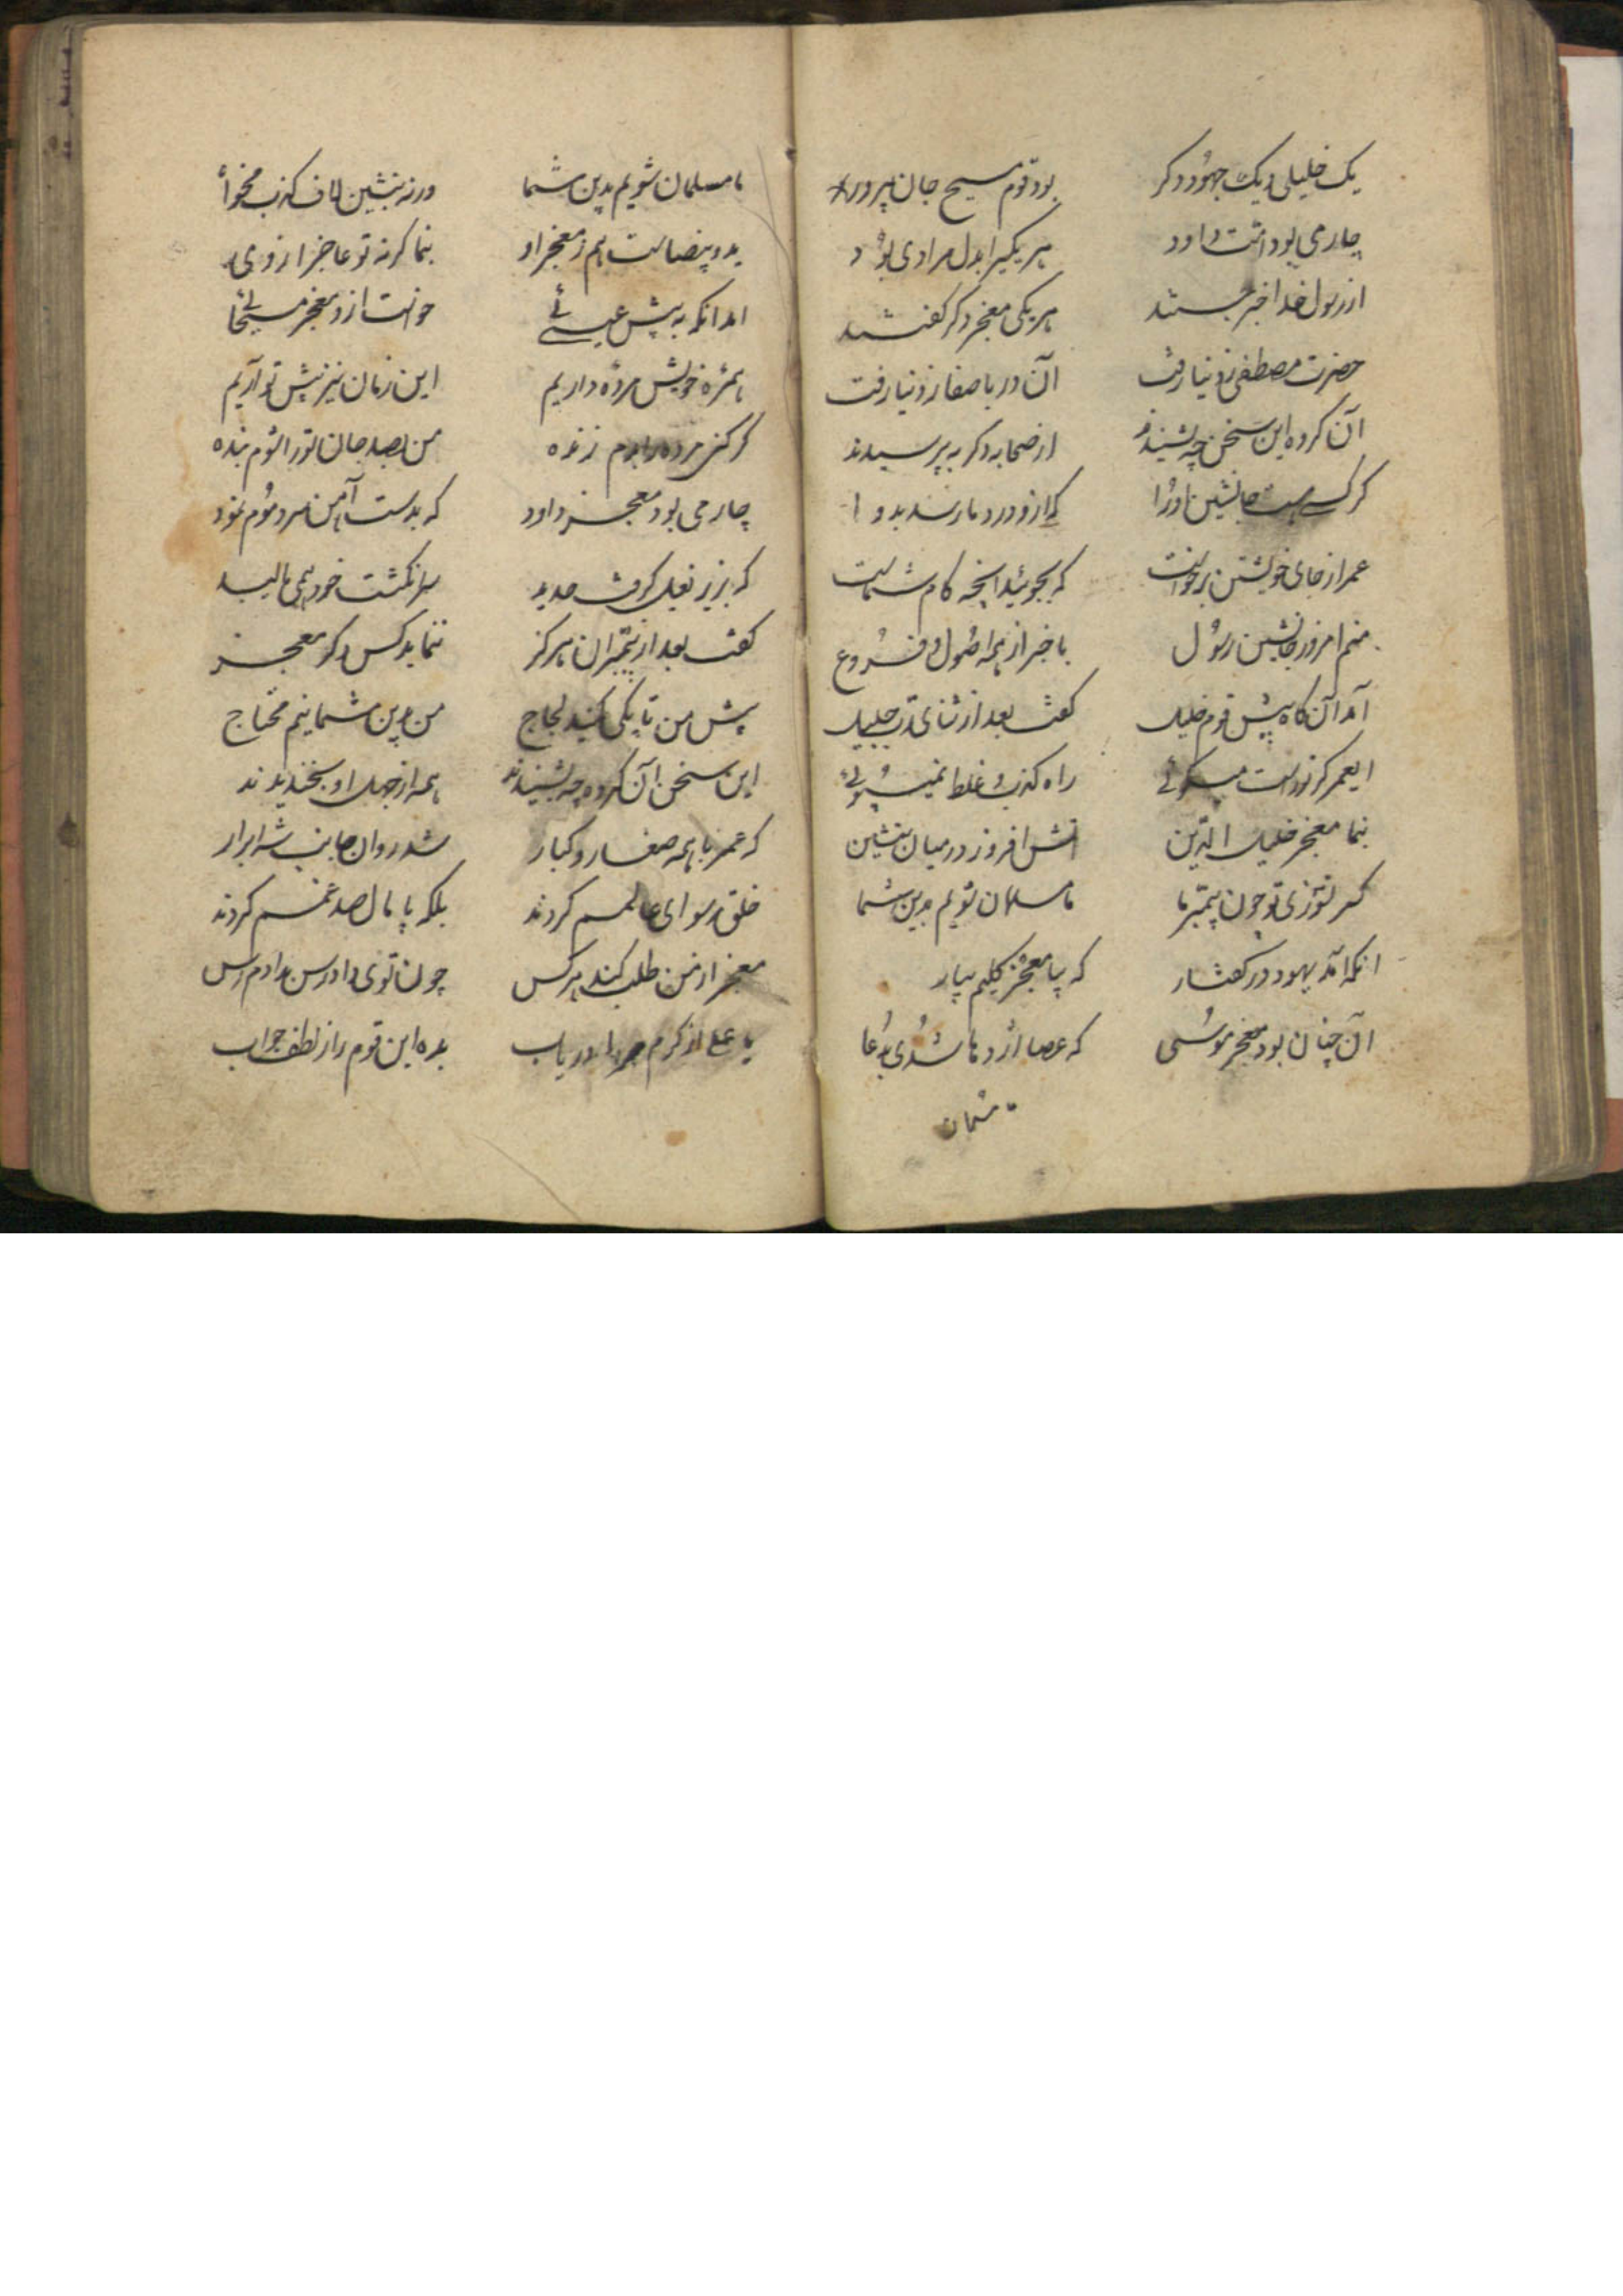 یک خلیلی و یک جهود دکر
بود قوم مسیح جان پرور
چارمی بود امت داود
هر یکیرا بدل مرادی بود
از رسول خدا خبر جستند
هر یکی معجز دکر کفتند
حضرت مصطفی ز دنیا رفت
آن در با صفا ز دنیا رفت
آن کروه این سخن چه بشنیدند
از صحابه دکر به پرسیدند
کر کسی هست جانشین او را
که ازو درد ما رسد بدوا
عمر از جای خویشتن برخواست
که بجوئید انچه کام شماست
منم امروز جانشین رسول
با خبر از همه اصول و فروع
آمد آن کاه پیش قوم خلیل
کفت بعد از ثنای رب جلیل
ایعمر کر تو راست میکوئی
راه کذب غلط نمیپوئی
بنما معجز خلیل الدین
اتش افروز در میان بنشین
کر نسوزی تو چون پیمبر ما
ما مسلمان شویم بدین شما
انکه آمد یهود در کفتار
که بیا معجز کلیم بیار
آن چنان بود معجز موسی
که عصا اژدها شدی بدعا
ما مسلمان شویم بدین شما
ورنه بنشین لاف کذب مخوا
ید و بیضاست هم ز معجز او
بنما کرنه تو عاجز ازوی
امد انکه به پیش عیسئی
خواست ازو معجز مسیحائی
همره خویش مرده داریم
این زمان نیز پیش تو آریم
کر کنی مرده را بدم زنده
من بصد جان تو را شوم بنده
چارمی بود معجز داود
که بدست آهن سرد موم نمود
که بزیر نعیل کوفت حدید
سر انکشت خود همی مالید
کفت بعد از پیمبران هرکز
ننماید کس دکر معجز
پیش من تا بکی کنید لجاج
من بدین شما نیم محتاج
این سخن آن کروه چه بشنیدند
همه از جهل او بخندیدند
که عمر با همه صغار و کبار
شد روان جانب شه ابرار
خلق رسوای عالمم کردند
بلکه پامال صد غمم کردند
معجز از من طلب کند هرکس
چون توی دادرس بدادم رس
یا علی از کرم مرا دریاب
بده این قوم را ز لطف جواب